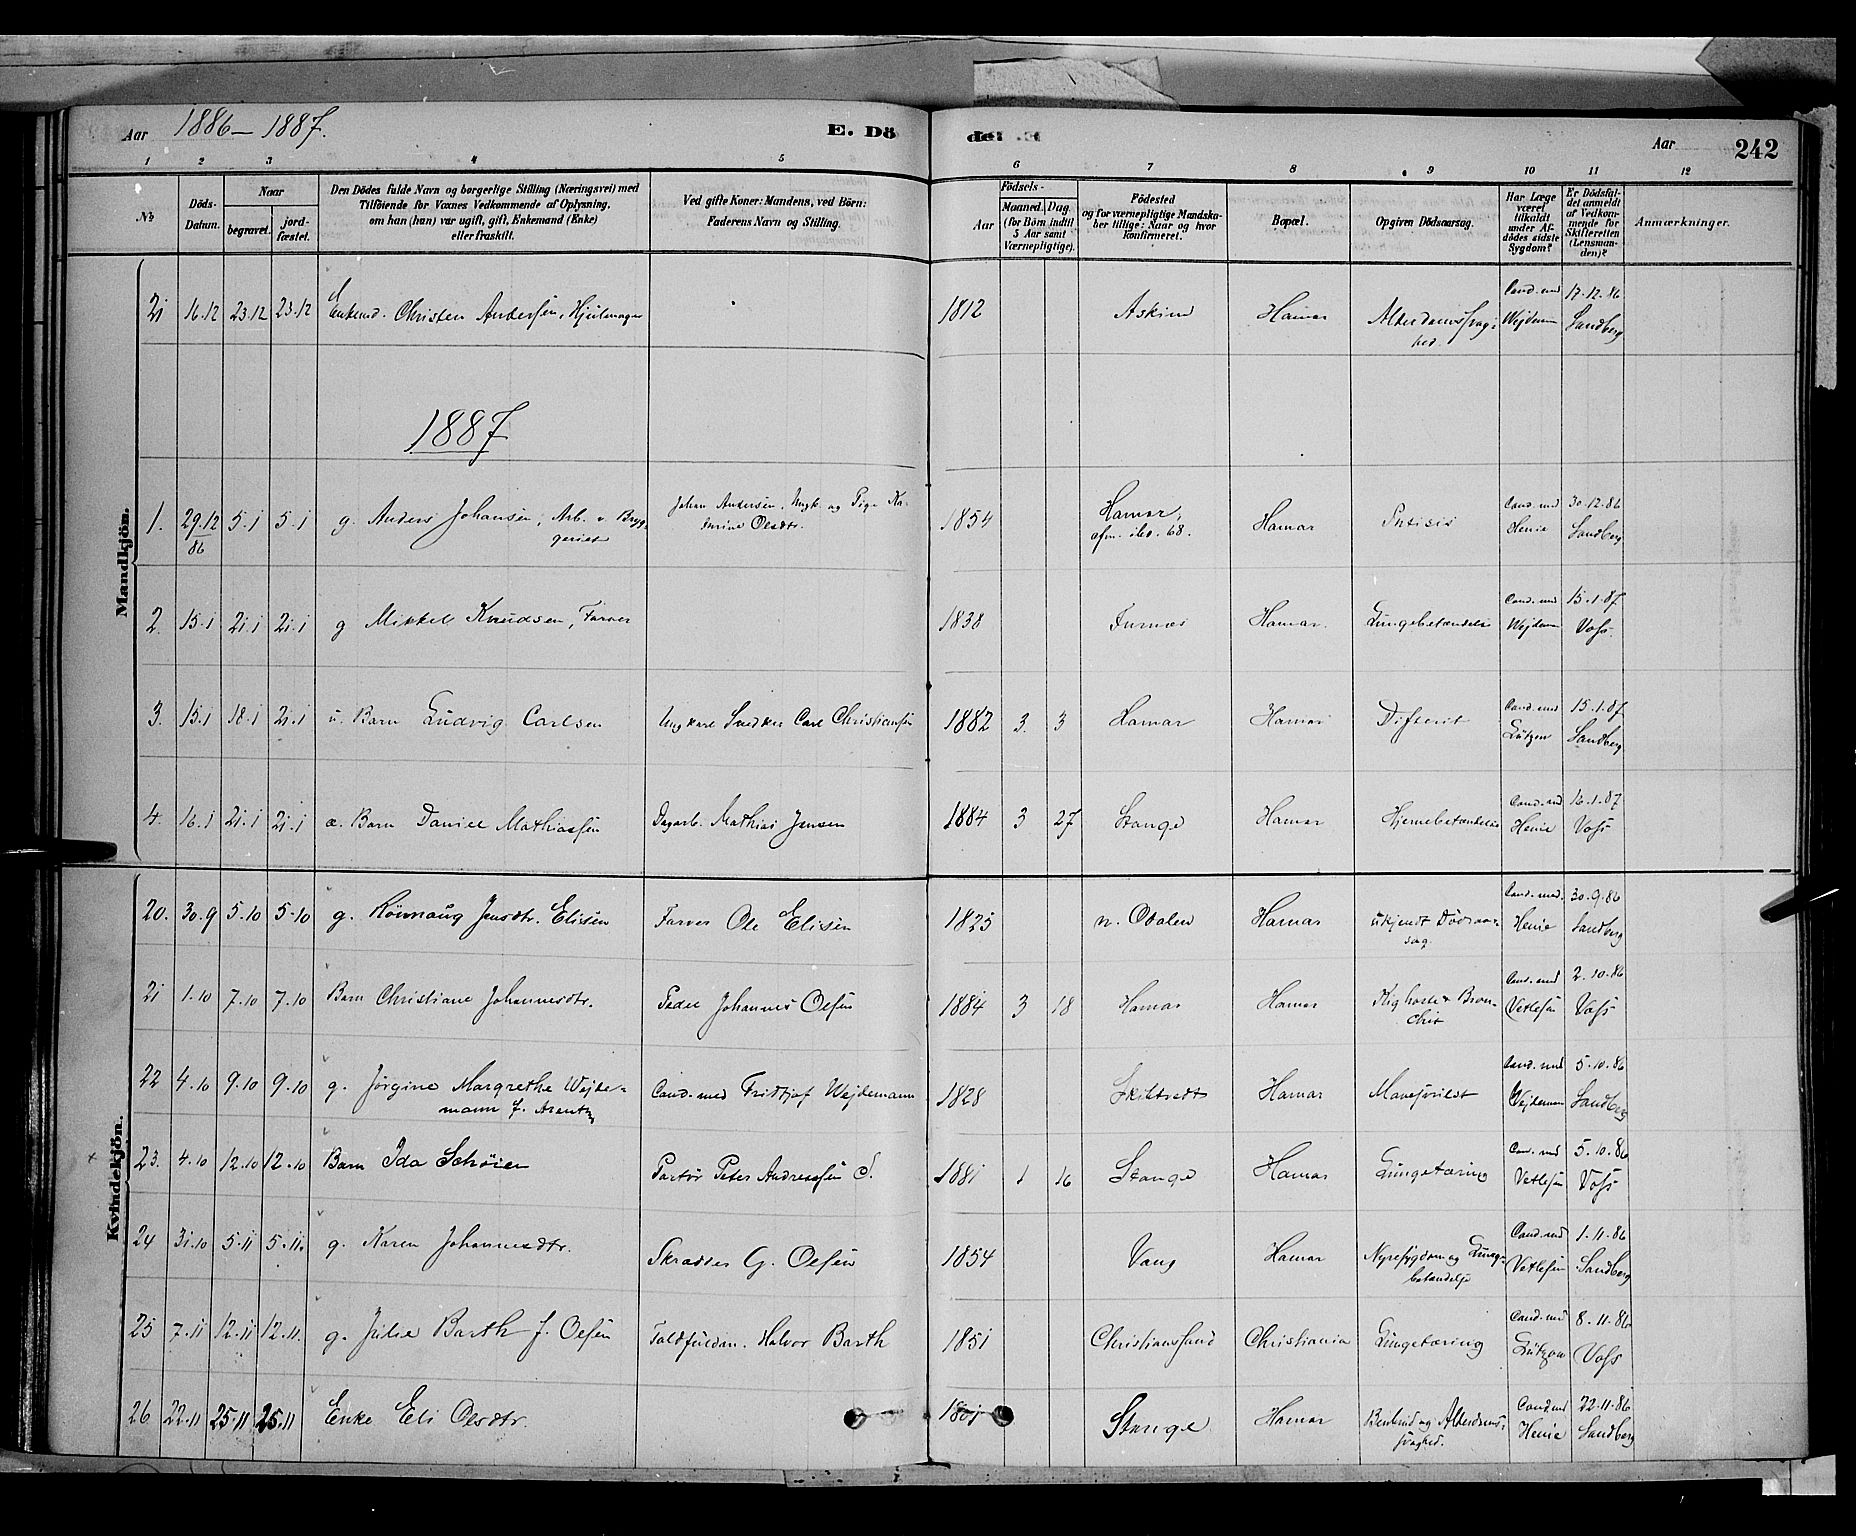 Aar 1886-1887.
E. Dö
de!
Aar
242
1 2 3 4 5 6 7 8 9 10 11 12
№
Döds-Datum.
Naar
begravet.
jord-fæstet.
Den Dödes fulde Navn og borgerlige Stilling (Næringsvei) med
Tilföiende for Voxnes Vedkommende af Oplysning,
om han (hun) var ugift, gift, Enkemand (Enke)
eller fraskilt.
Ved gifte Koner: Mandens, ved Börn:
Faderens Navn og Stilling.
Födsels-
Aar
Maaned. Dag.
(for Börn indtil
5 Aar samt
Værnepligtige).
Födested
og for værnepligtige Mandska-
ber tillige: Naar og hvor
konfirmeret.
Bopæl.
Opgiven Dödsaarsag.
Har Læge
været
tilkaldt
under Af-
dödes sidste
Sygdom?
Er Dödsfal-
det anmeldt
af Vedkom-
mende for
Skifteretten
(Lensman-
den)?
Anmærkninger.
Mandkjön.
21 16.12 23.12 23.12 Enkemd. Christen Andersen, Hjulmager 1812 Askim Hamar Alderdomssvag-
hed. Cand. med Wejdeman 17.12.86 Sandberg
1887
1. 29.12 86 5.1 5.1 g. Anders Johansen, Arb. v. Bryg-
geriet Johan Andersen, Ungk. og Pige Ka-
trine Olsdtr. 1854 Hamar, 68. Hamar Phtisis Cand. med Henie 30.12.86 Sandberg
2. 15.1 21.1 21.1 g Mikkel Knudsen, Farver 1838 Furnæs Hamar. Lungebetændelse Cand. med Wejdeman 15.1.87 Voss.
3. 15.1 18.1 21.1 u. Barn Ludvig Carlsen Ungkarl Snedker Carl Christiansen 1882 3. 3 Hamar Hamar Difterit Cand. med Lützow 15.1.87 Sandberg
4. 16.1 21.1 21.1 æ. Barn Daniel Mathiassen Dagarb. Mathias Jensen 1884 3 27 Stange Hamar Hjernebetændelse Cand. med Henie 16.1.87 Voss
Kvindekjön.
20. 30.9 5.10 5.10 g. Rönnaug Jensdtr. Elisen Farver Ole Elisen 1825 n. Odalen Hamar ukjendt Dödsaar-
sag. Cand. med. Henie 30.9.86 Sandberg
21 1.10 7.10 7.10 Barn Christiane Johannesdtr. Johannes Olsen 1884 3 18 Hamar Hamar Kighoste & Bron-
chit Cand. med Vetlesen 2.10.86 Voss
22 4.10 9.10 9.10 g. Jörgine Margrethe Wejde-
mann f. Arentz Cand. med Fridtjof Wejdemann 1828 Hamar Cand. med Wejdeman 5.10.86 Sandberg
23. 4.10 12.10 12.10 Barn Ida Schöien Peter Andreassen S. 1881 1 16 Stange Hamar Lungetæring Cand. med Vetlesen 5.10.86 Voss
24 31.10 5.11 5.11. g. Karen Johannesdtr. Skrædder G. Olsen 1854 Vang Hamar Nyresygdom og Lunge-
betændelse Cand. med Vetlesen 1.11.86 Sandberg
25 7.11 12.11 12.11. g. Julie Barth f. Olsen Toldfuldm. Halvor Barth 1851 Christianssand Christiania Lungetæring Cand. med Lützow 8.11.86 Voss
26 22.11 25.11 25.11 Enke Eli Olsdtr. 1801 Stange Hamar Benbrud og Alderdoms-
svaghed. Cand med Henie 22.11.86 Sandberg